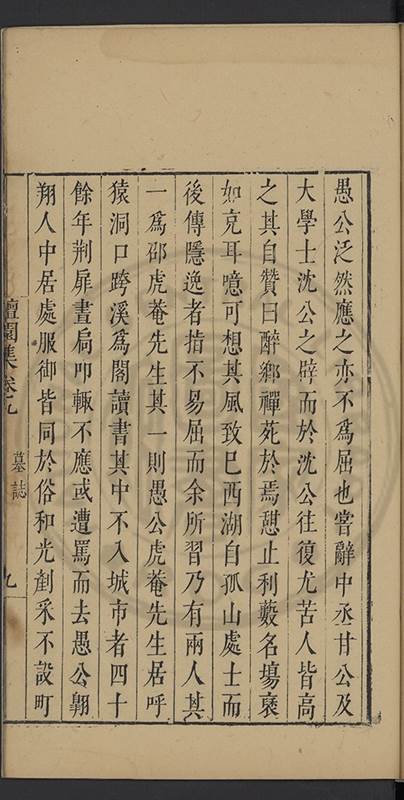 愚公泛然應之亦不爲屈也嘗辭中丞甘公及
大學士沈公之辟而於沈公往復尤苦人皆高
之其自贊曰醉鄉禪苑於焉憇止利藪名塲裦
如充耳噫可想其風致巳西湖自孤山處士而
後傳隱逸者指不易屈而余所習乃有兩人其
一爲邵虎菴先生其一則愚公虎菴先生居呼
猿洞口跨溪爲閣讀書其中不入城市者四十
餘年荆扉晝扃叩輒不應或遭罵而去愚公翺
翔人中居處服御皆同於俗和光剷采不設町
集卷九 墓誌 九